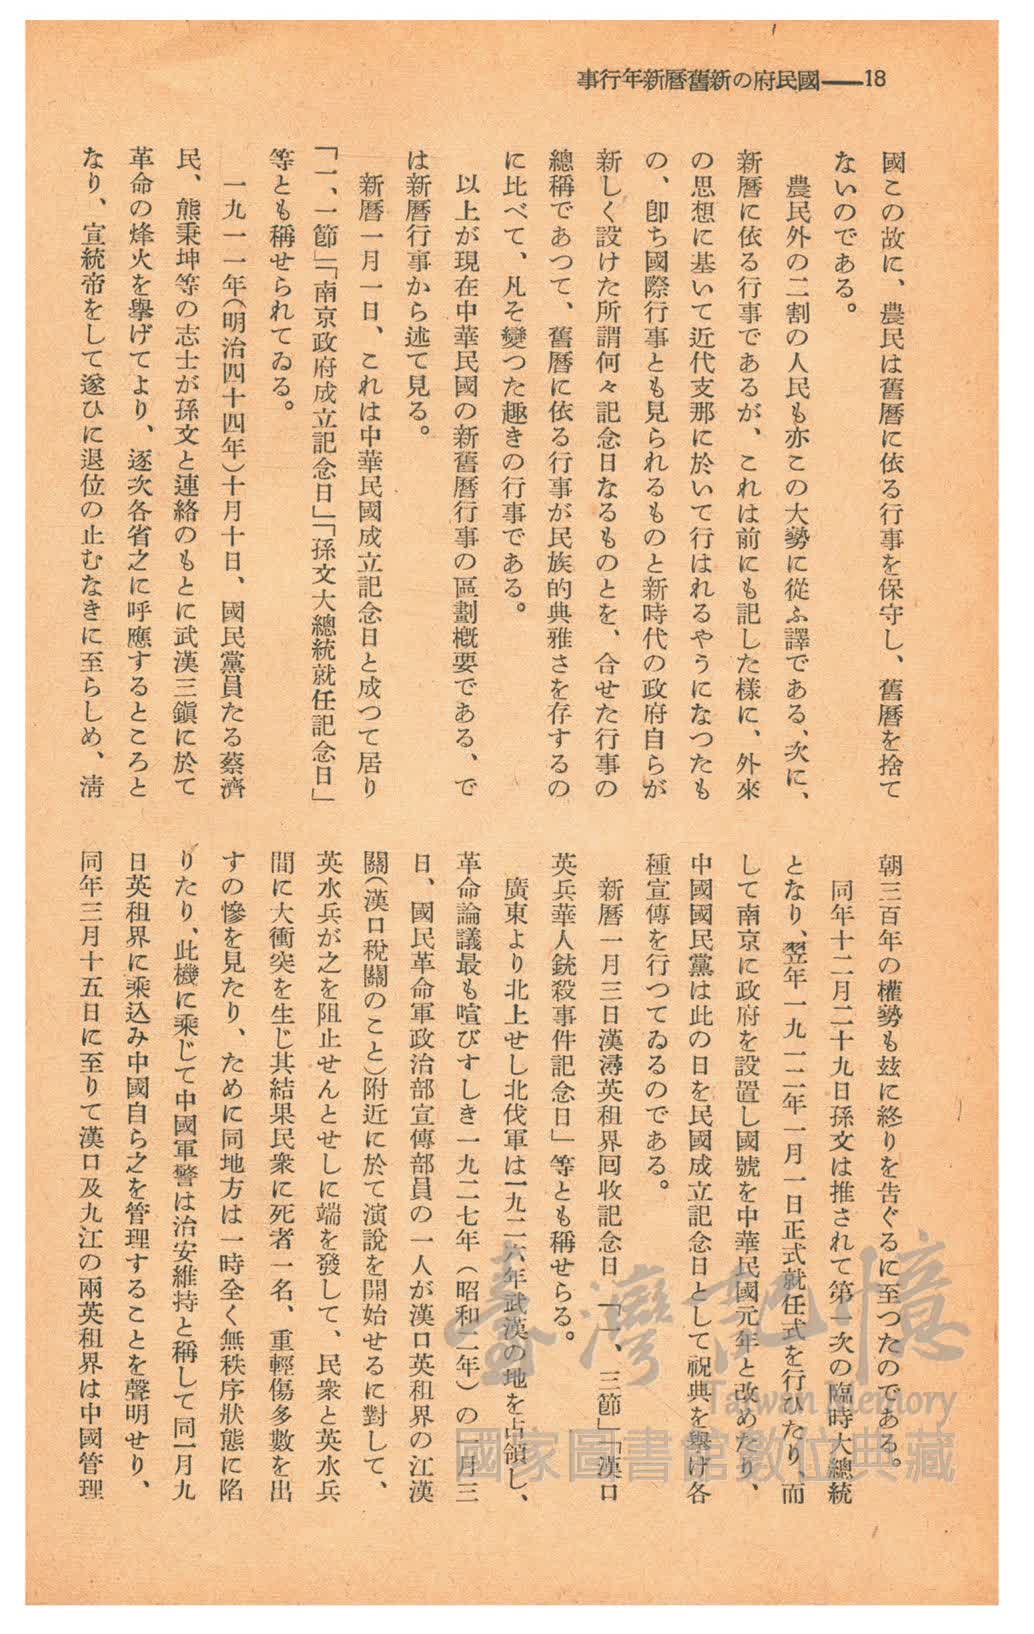 18——國民府の新舊曆新年行事
國この故に、農民は舊曆に依る行事を保守し、舊曆を捨て
ないのである。
農民外の二割の人民も亦この大勢に從ふ譯である、次に、
新曆に依る行事であるが、これは前にも記した樣に、外來
の思想に基いて近代支那に於いて行はれるやうになつたも
の、卽ち國際行事とも見られるものと新時代の政府自らが
新しく設けた所謂何々記念日なるものとを、合せた行事の
總稱であつて、舊曆に依る行事が民族的典雅さを存するの
に比べて、凡そ變つた趣きの行事である。
以上が現在中華民國の新舊曆行事の區劃槪要である、で
は新曆行事から述て見る。
新曆一月一日、これは中華民國成立記念日と成つて居り
「一、一節」「南京政府成立記念日」「孫文大總統就任記念日」
等とも稱せられてゐる。
一九一一年(明治四十四年)十月十日、國民黨員たる蔡濟
民、熊秉坤等の志士が孫文と連絡のもとに武漢三鎭に於て
革命の烽火を擧げてより、逐次各省之に呼應するところと
なり、宣統帝をして遂ひに退位の止むなきに至らしめ、淸
朝三百年の權勢も玆に終りを告ぐるに至つたのである。
同年十二月二十九日孫文は推されて第一次の臨時大總統
となり、翌年一九一二年一月一日正式就任式を行ひたり、而
して南京に政府を設置し國號を中華民國元年と改めたり、
中國國民黨は此の日を民國成立記念日として祝典を擧げ各
種宣傳を行つてゐるのである。
新曆一月三日漢潯英租界囘收記念日 「一、三節」「漢口
英兵華人銃殺事件記念日」等とも稱せらる。
廣東より北上せし北伐軍は一九二六年武漢の地を占領し、
革命論議最も喧びすしき一九二七年(昭和二年)の一月三
日、國民革命軍政治部宣傳部員の一人が漢口英租界の江漢
關(漢口稅關のこと)附近に於て演說を開始せるに對して、
英水兵が之を阻止せんとせしに端を發して、民衆と英水兵
間に大衝突を生じ其結果民衆に死者一名、重輕傷多數を出
すの慘を見たり、ために同地方は一時全く無秩序狀態に陷
りたり、此機に乘じて中國軍警は治安維持と稱して同一月九
日英租界に乘込み中國自ら之を管理することを聲明せり、
同年三月十五日に至りて漢口及九江の兩英租界は中國管理
臺灣記憶
Taiwan Memory
國家圖書館數位典藏